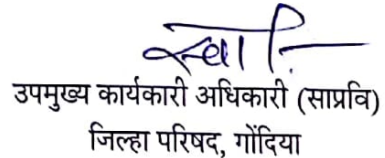 स्वा/-
उपमुख्य कार्यकारी अधिकारी (साप्रवि)
जिल्हा परिषद, गोंदिया